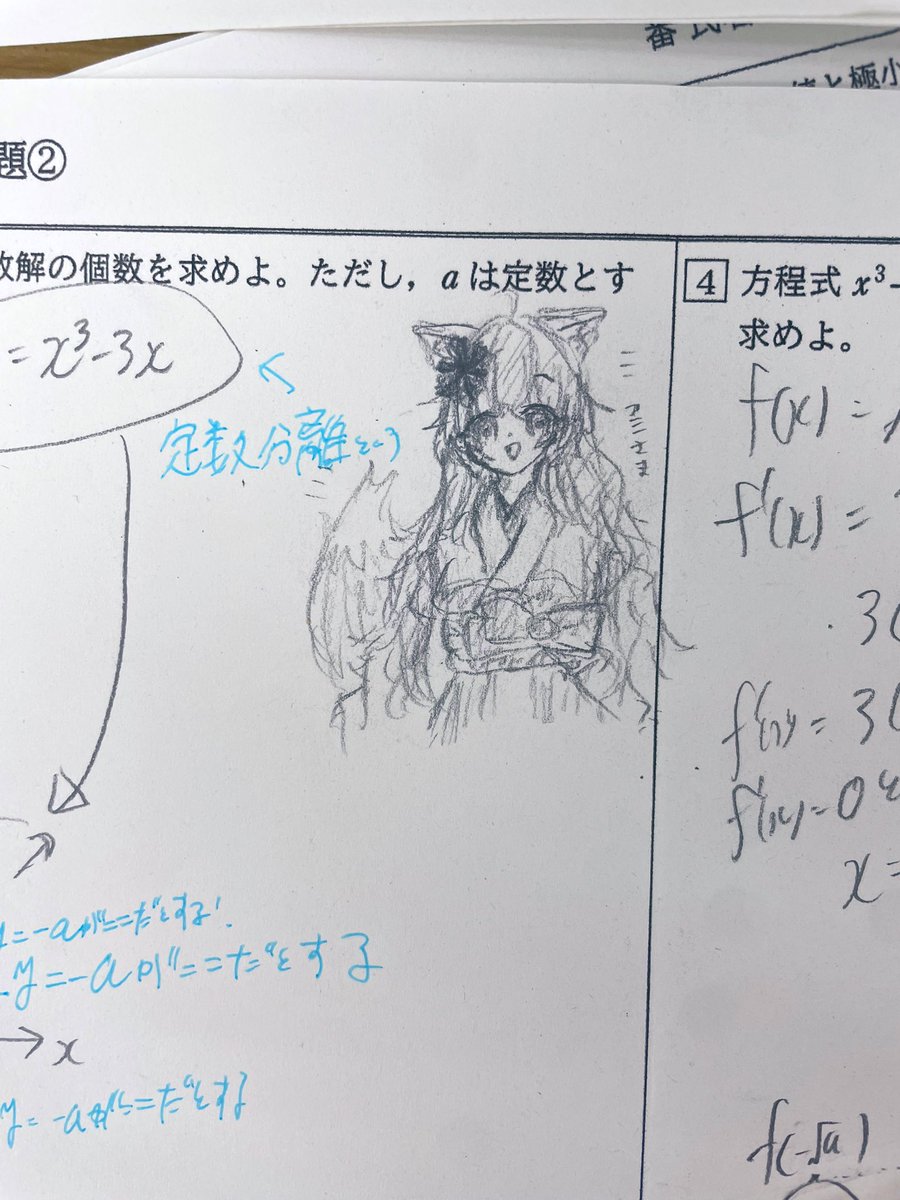 題②
数解の個数を求めよ。ただし，aは定数とす
= x³-3x
定数分離という
y=-aがここだとする!
y=-aがここだとする
x
y=-aがここだとする
4 方程式 x³-
求めよ。
f(x) =
f'(x) =
3(
f'(x) = 3(
f'(x)=0と
x=
f(-√a)